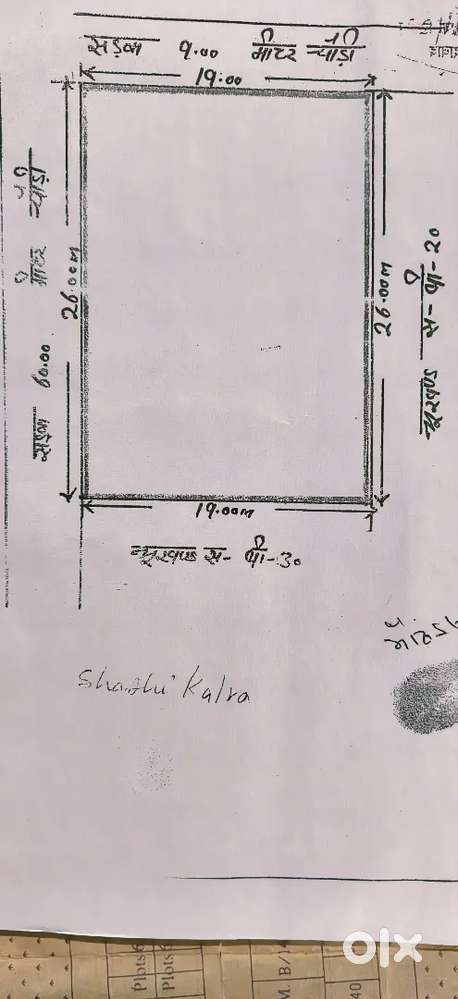 सड़क 9.00 मीटर चौड़ी
19.00
सड़क 60.00 मीटर चौड़ी
26.00M
26.00M
भूखण्ड स- पी-20
19.00M
भूखण्ड स- पी-30
Shanthi Kalra
Plots
Plots
M. B/
40
olx